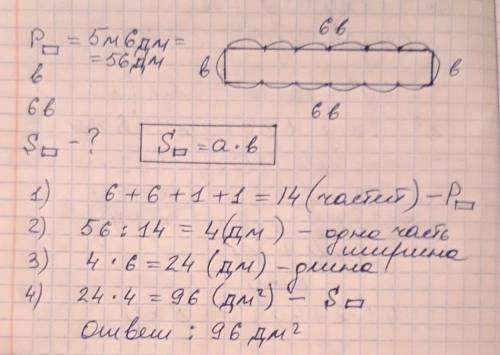 P▭ = 5м 6дм =
= 56дм
6в
в
в
6в
в
6в
S▭ - ?
S▭ = а · в
1) 6 + 6 + 1 + 1 = 14 (частей) - P▭
2) 56 : 14 = 4 (дм) - одна часть
ширина
3) 4 · 6 = 24 (дм) - длина
4) 24 · 4 = 96 (дм²) - S▭
Ответ : 96 дм²